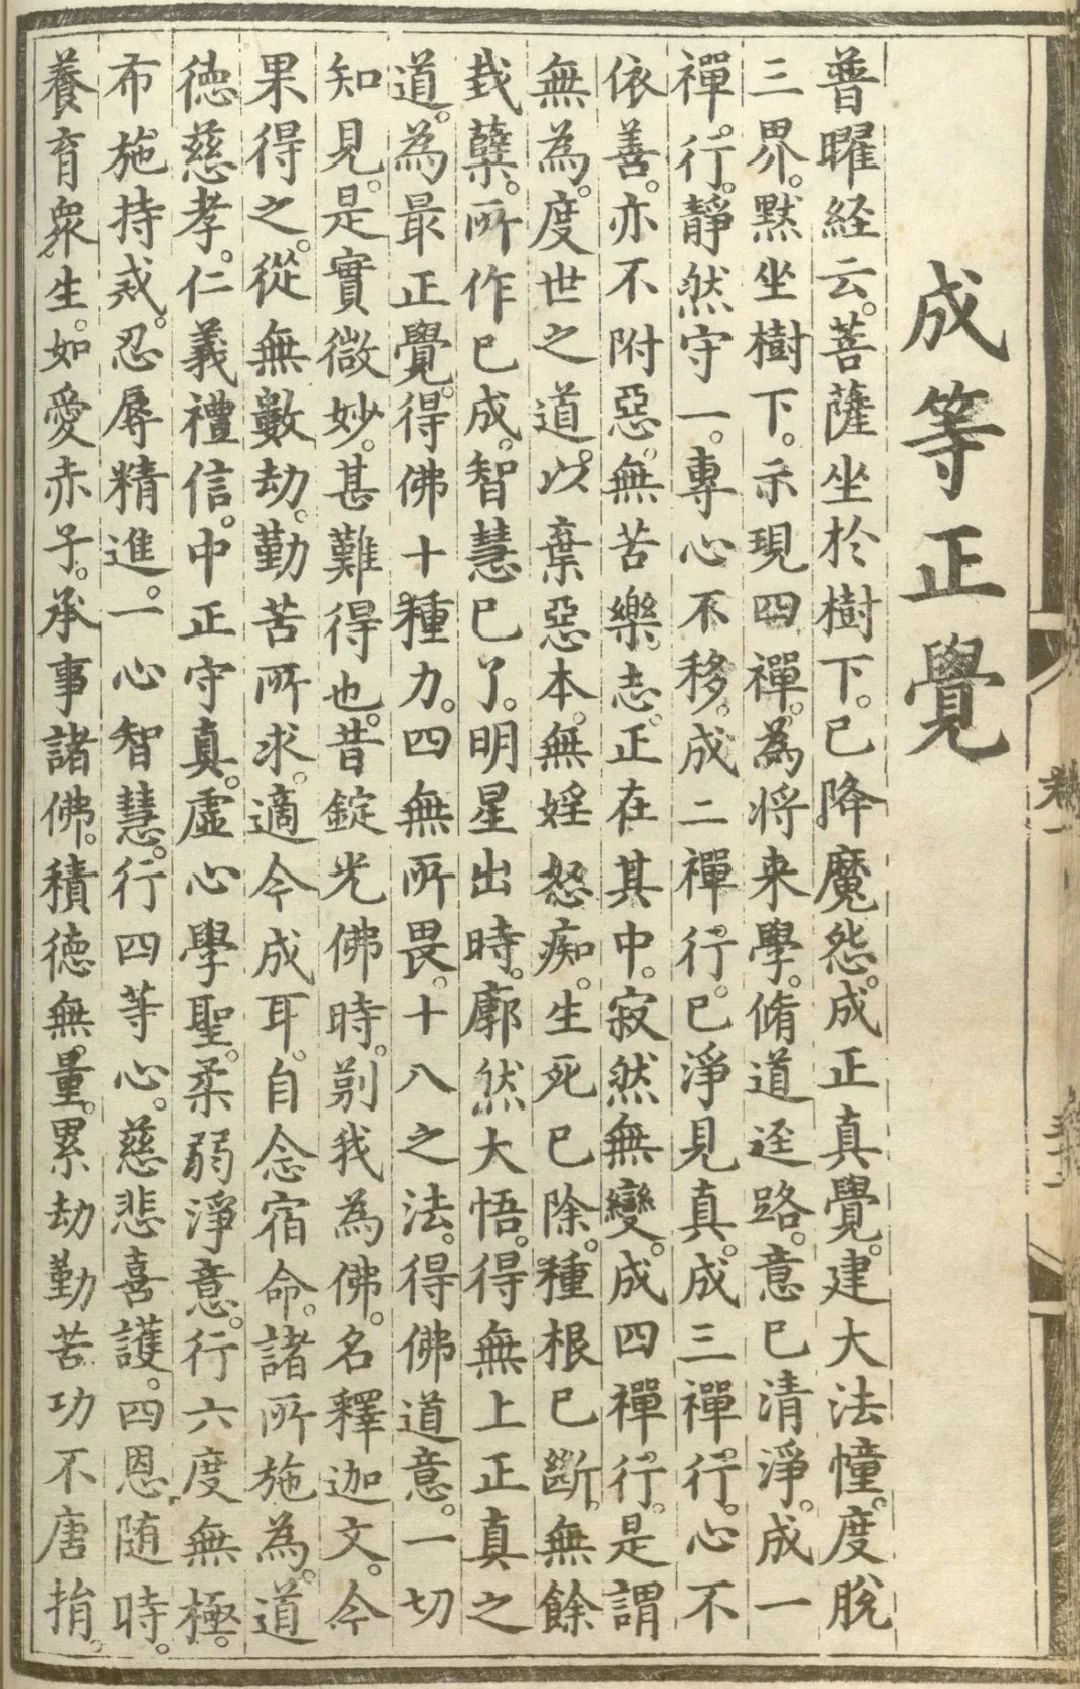 成等正覺
普曜経云。菩薩坐於樹下。已降魔怨。成正真覺。建大法幢。度脫
三界。黙坐樹下。示現四禪。為將来學。脩道逕路。意已清淨。成一
禪行。靜然守一。專心不移。成二禪行。已淨見真。成三禪行。心不
依善。亦不附惡。無苦樂志。正在其中。寂然無變。成四禪行。是謂
無為。度世之道。以棄惡本。無婬怒痴。生死已除。種根已斷。無餘
栽蘖。所作已成。智慧已了。明星出時。廓然大悟。得無上正真之
道。為最正覺。得佛十種力。四無所畏。十八之法。得佛道意。一切
知見。是實微妙。甚難得也。昔錠光佛時。莂我為佛。名釋迦文。今
果得之。從無數劫。勤苦所求。適今成耳。自念宿命。諸所施為。道
徳慈孝。仁義禮信。中正守真。虛心學聖。柔弱淨意。行六度無極。
布施持戒。忍辱精進。一心智慧。行四等心。慈悲喜護。四恩随時。
養育衆生。如愛赤子。承事諸佛。積徳無量。累劫勤苦功不唐捐。
卷一